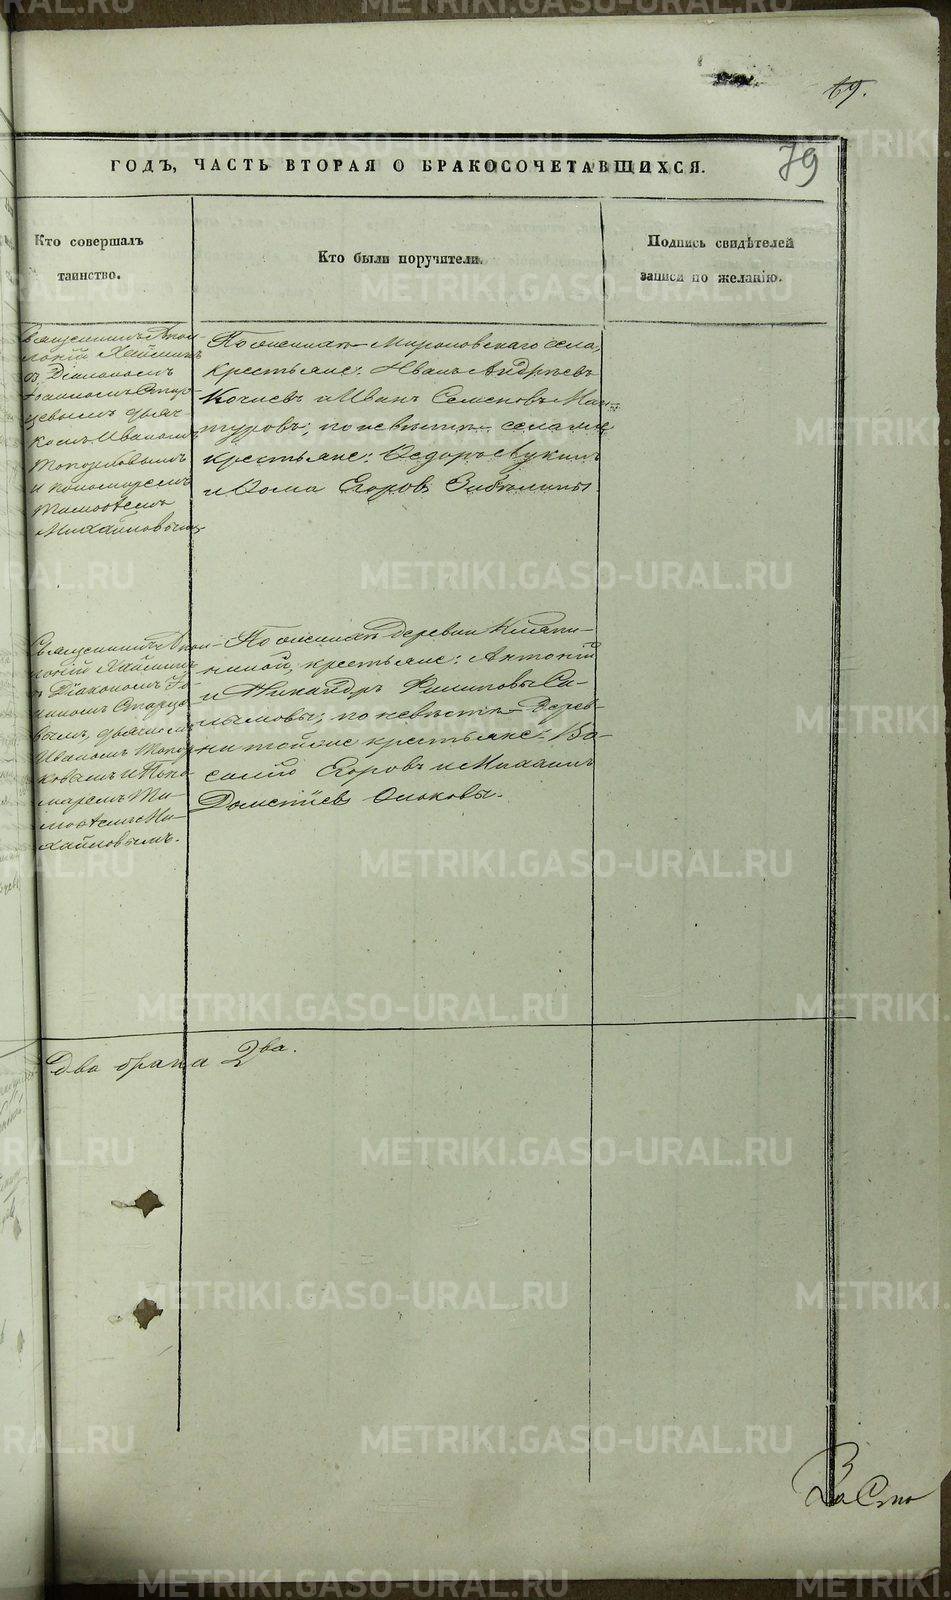 69.
79
ГОДЪ, ЧАСТЬ ВТОРАЯ О БРАКОСОЧЕТАВШИХСЯ.
Кто совершалъ
таинство.
Кто были поручители.
Подпись свидѣтелей
записи по желанію.
Священникъ Апол-
лоній Хайминъ
съ Діакономъ
Іоанномъ Старц-
евымъ дьяч-
комъ Иваномъ
Топорковымъ
и пономаремъ
Тимоѳеемъ
Михайловымъ
По женихѣ Мироновскаго села,
крестьяне: Иванъ Андреевъ
и Иванъ Семеновъ Ман-
туровъ; по невѣстѣ села
крестьяне: Ѳедоръ Лукинъ
и Ѳома Егоровъ
Священникъ Апол-
лоній Хайминъ
съ Діакономъ Іо-
анномъ Старце-
вымъ, дьячкомъ
Иваномъ Топор-
ковымъ и Поно-
маремъ Ти-
моѳеемъ Ми-
хайловымъ.
По женихѣ деревни
крестьяне: Антоній
и Никандръ Филиповы
по невѣстѣ Дерев-
ни тойже крестьяне: Ва-
силій Егоровъ и Михаилъ
Дометіевъ
Два брака 2ва.
METRIKI.GASO-URAL.RU